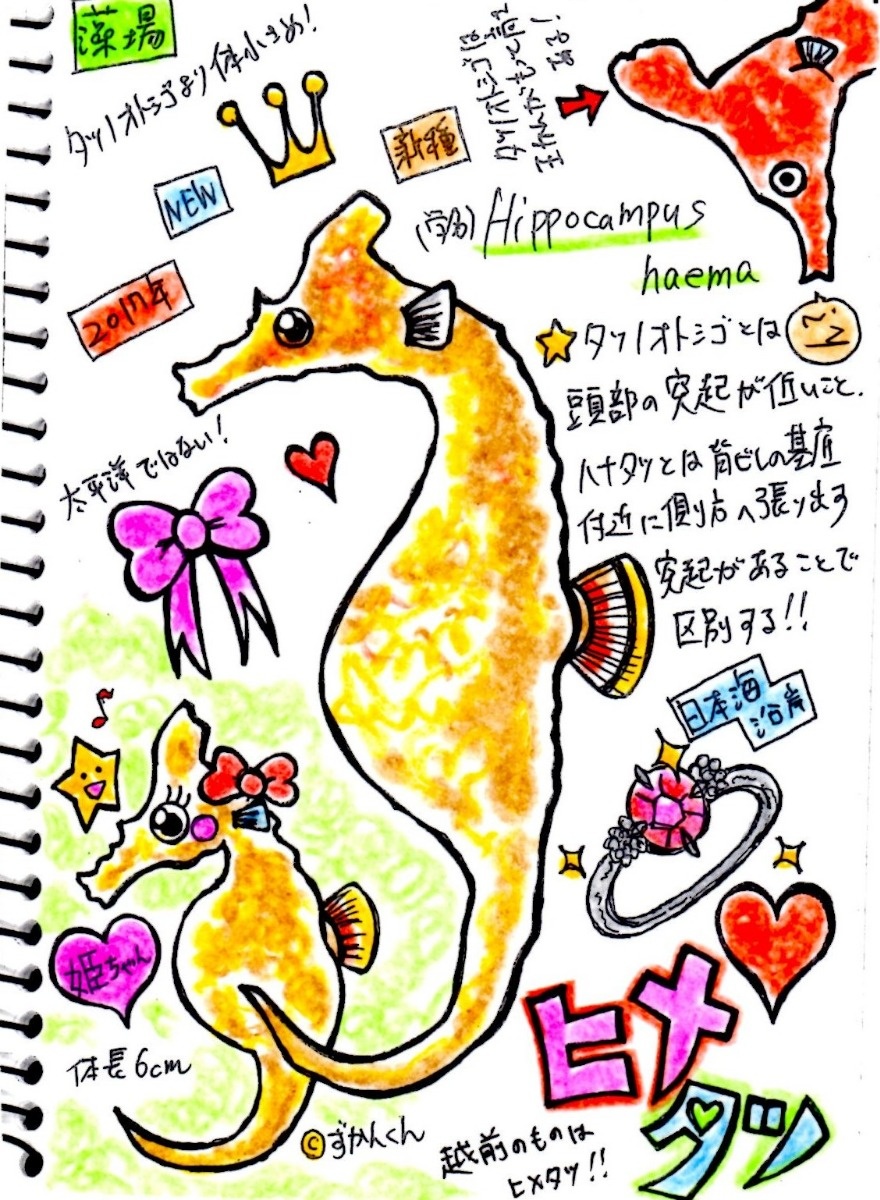 藻場
タツノオトシゴより体小さめ!
NEW
新種
2017年
(学名) Hippocampus
haema
☆タツノオトシゴとは
頭部の突起が低いこと、
ハナタツとは背ビレの基底
付近に側方へ張り出す
突起があることで
区別する!!
太平洋ではない!
日本海
沿岸
姫ちゃん
体長6cm
©ずかんくん
ヒメ
タツ
越前のものは
ヒメタツ!!